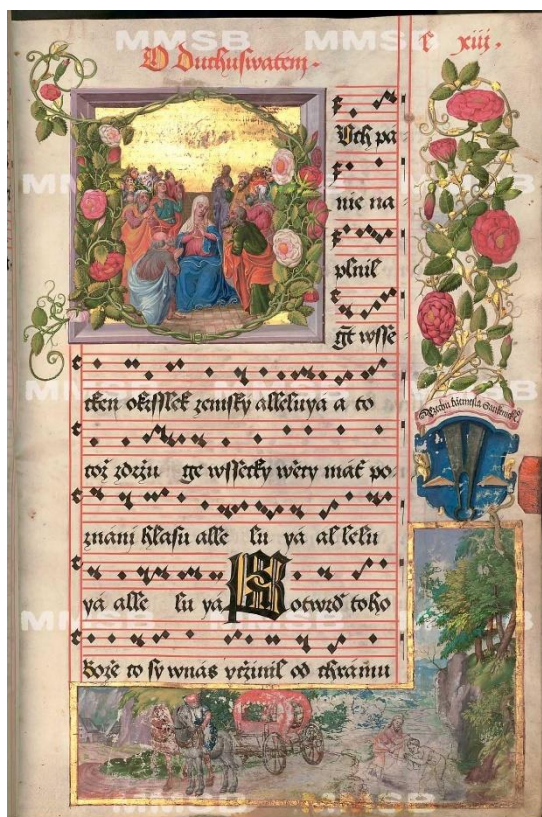 MMSB MMSB
O Duchuswatem .
C xiij .
Vch pa
nie na
plnil
gt wsse
cken okrsslek zemsky alleluya a to
coz zdrzu ge wssecky wecy mat po
znani hlasu alle lu ya al lelu
ya alle lu ya Potwrd toho
Boze to sy wnas vczinil od chramu